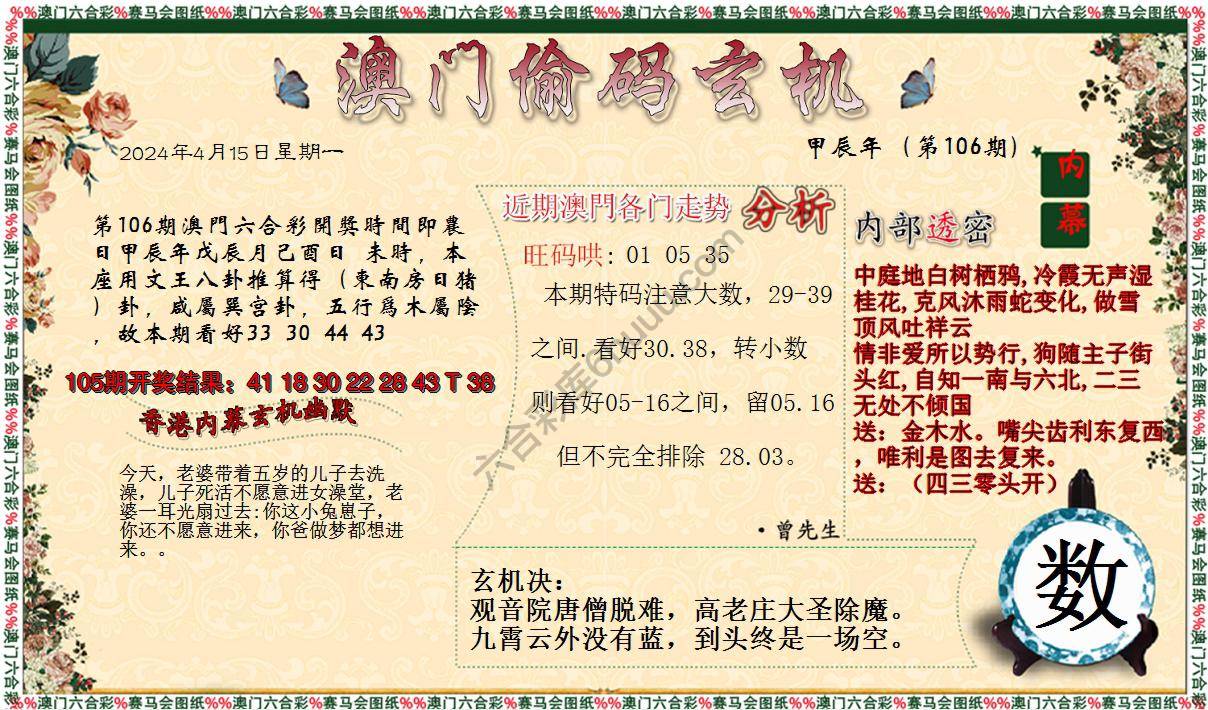 %%澳门六合彩%赛马会图纸%%澳门六合彩%赛马会图纸%%澳门六合彩%赛马会图纸%%澳门六合彩%赛马会图纸%%澳门六合彩%赛马会图纸%%澳门六合彩%赛马会图纸%%
澳门偷码玄机
2024年4月15日星期一
甲辰年（第106期）
内
幕
第106期澳門六合彩開獎時間即農
日甲辰年戊辰月己酉日 未時，本
座用文王八卦推算得（東南房日猪
）卦，咸屬巽宫卦，五行爲木屬陰
，故本期看好33 30 44 43
105期开奖结果：41 18 30 22 28 43 T 38
香港内幕玄机幽默
今天，老婆带着五岁的儿子去洗
澡，儿子死活不愿意进女澡堂，老
婆一耳光扇过去:你这小兔崽子，
你还不愿意进来，你爸做梦都想进
来。。
近期澳門各门走势 分析
旺码哄: 01 05 35
本期特码注意大数，29-39
之间.看好30.38，转小数
则看好05-16之间，留05.16
但不完全排除 28.03。
·曾先生
内部透密
中庭地白树栖鸦,冷霞无声湿
桂花,克风沐雨蛇变化,做雪
顶风吐祥云
情非爱所以势行,狗随主子街
头红,自知一南与六北,二三
无处不倾国
送：金木水。嘴尖齿利东复西
，唯利是图去复来。
送：（四三零头开）
玄机决：
观音院唐僧脱难，高老庄大圣除魔。
九霄云外没有蓝，到头终是一场空。
数
%%澳门六合彩%赛马会图纸%%澳门六合彩%赛马会图纸%%澳门六合彩%赛马会图纸%%澳门六合彩%赛马会图纸%%澳门六合彩%赛马会图纸%%澳门六合彩%赛马会图纸%%